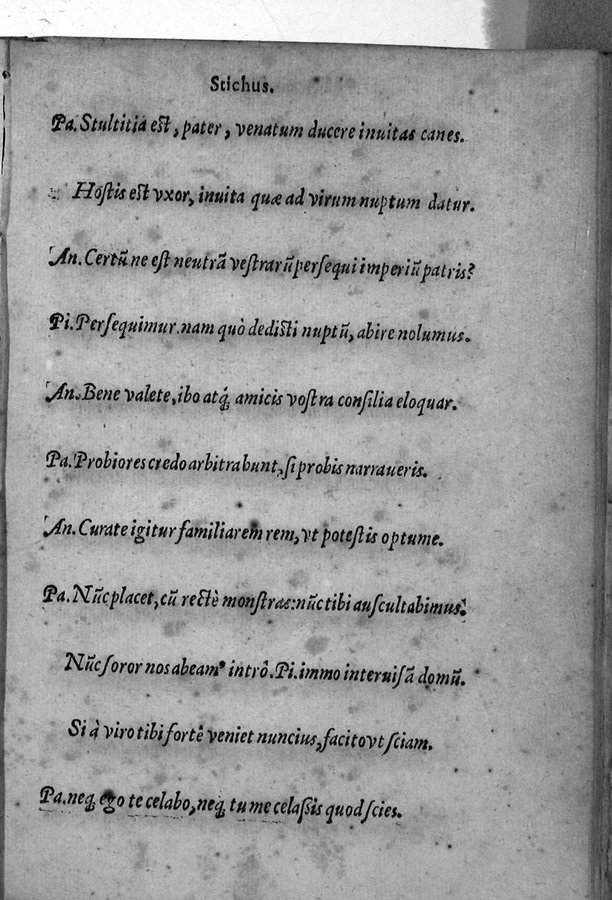 Stichus.
Pa. Stultitia est, pater, venatum ducere inuitas canes.
Hostis est vxor, inuita quæ ad virum nuptum datur.
An. Certũ ne est neutrã vestrarũ persequi imperiũ patris?
Pi. Persequimur. nam quò dedisti nuptũ, abire nolumus.
An. Bene valete, ibo atq́; amicis vostra consilia eloquar.
Pa. Probiores credo arbitrabunt, si probis narraueris.
An. Curate igitur familiarem rem, vt potestis optume.
Pa. Nũc placet, cũ rectè monstras: nũc tibi auscultabimus.
Nũc soror nos abeamꝰ intrô. Pi. immo interuisã domũ.
Si à viro tibi fortè veniet nuncius, facito vt sciam.
Pa. neq́; ego te celabo, neq́; tu me celaßis quod scies.